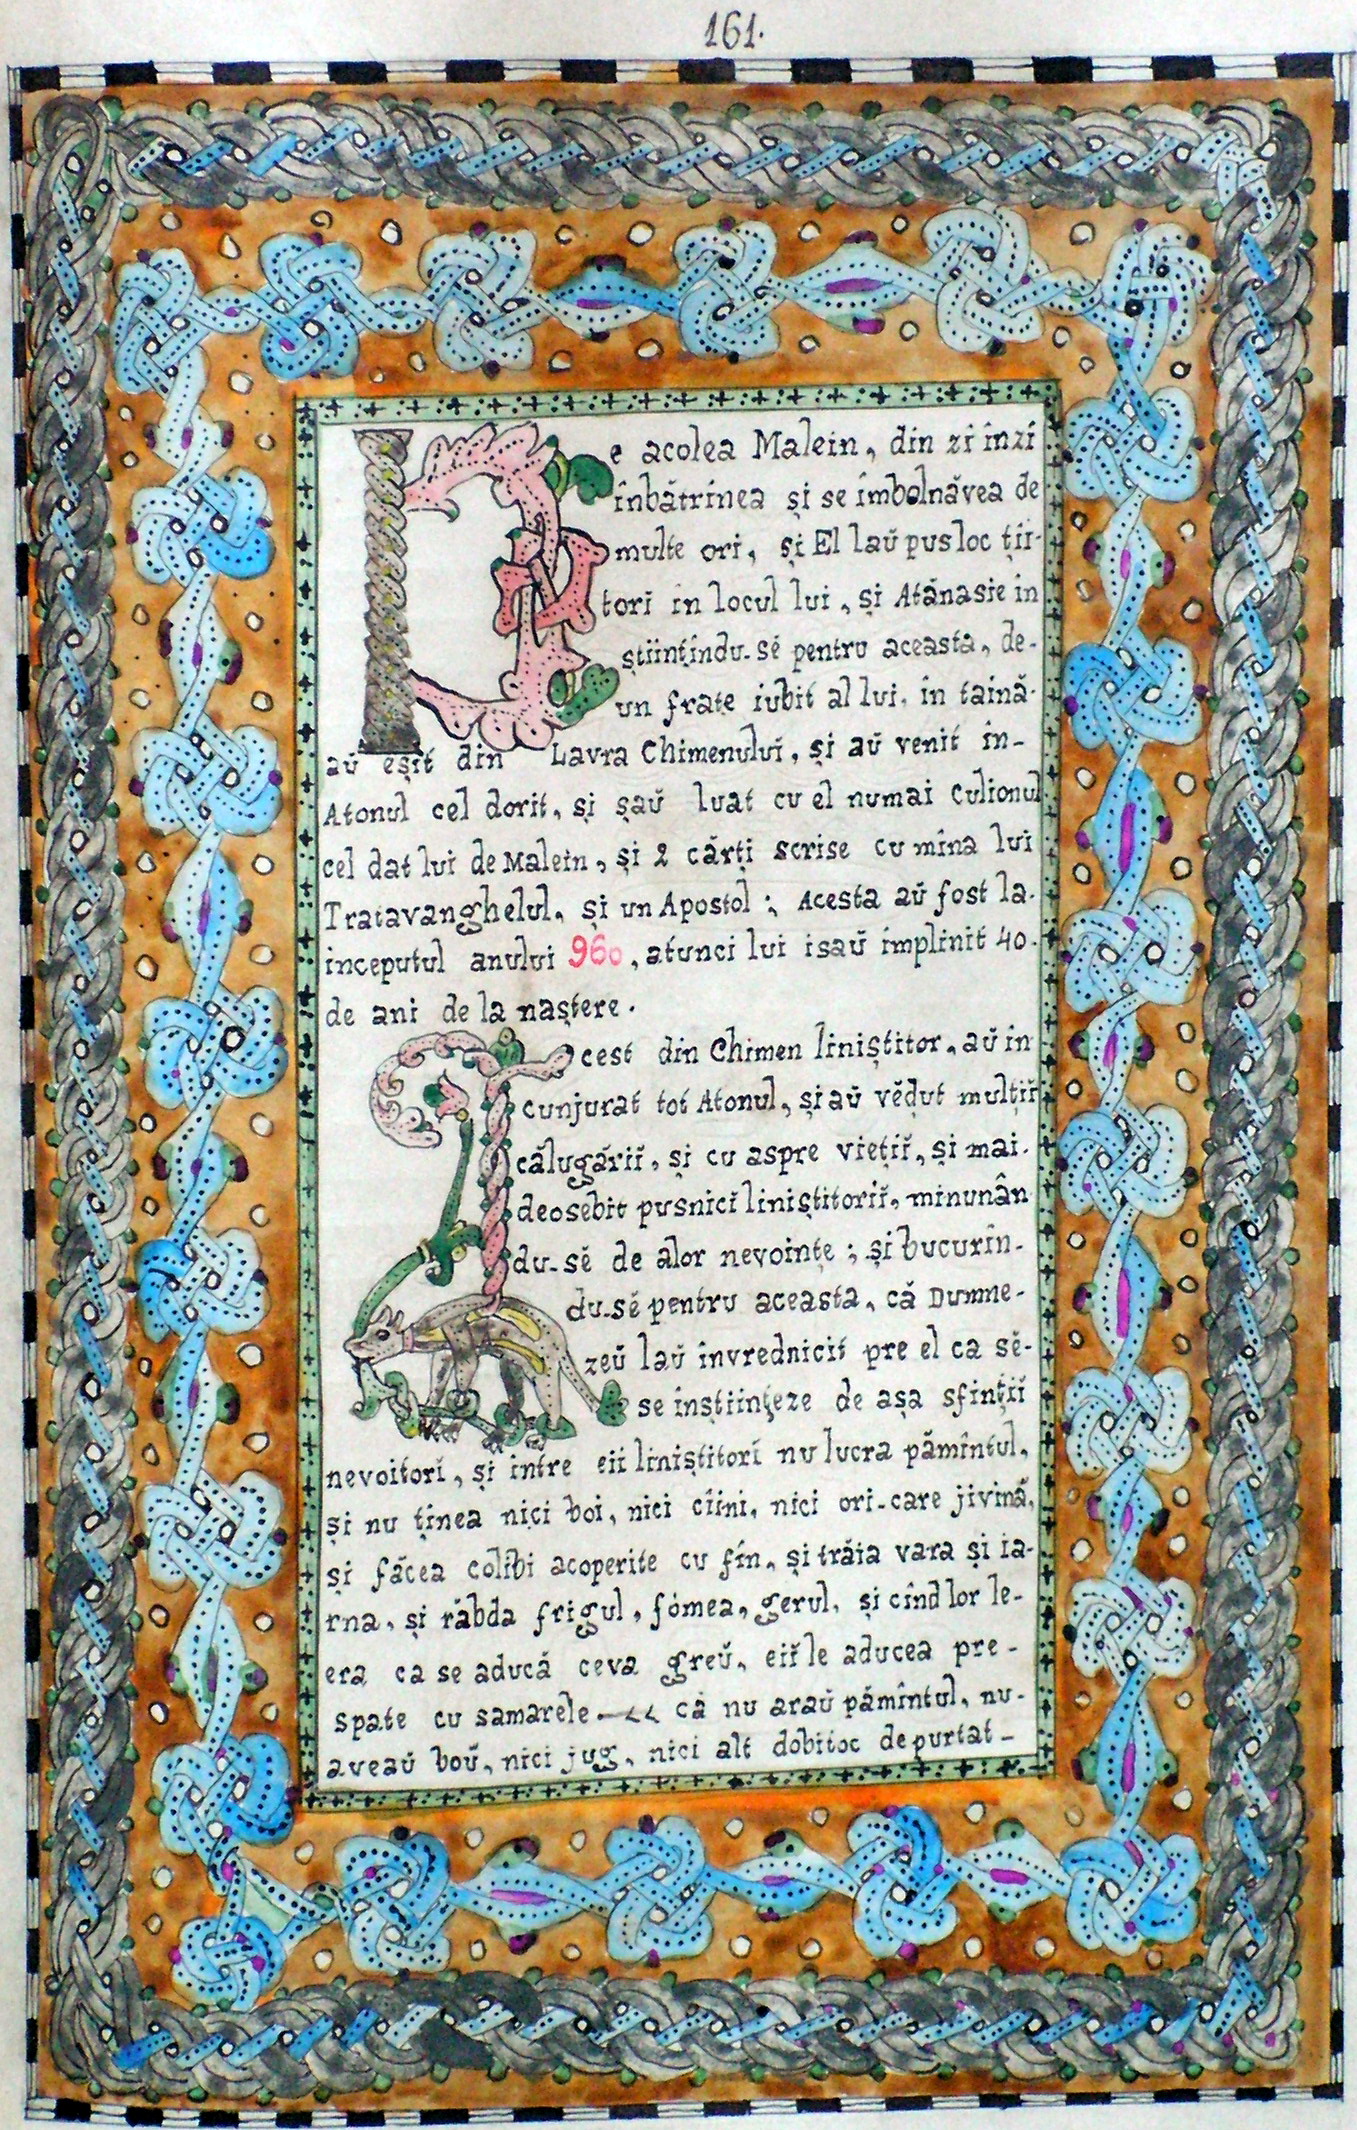 161.
De acolea Malein, din zi înzi
înbătrinea și se îmbolnăvea de
multe ori, și El laŭ pus loc țîi-
tori in locul lui, și Atănasie in
știintindu-sĕ pentru aceasta, de-
un frate iubit al lui, în taină
aŭ eșit din Lavra Chimenuluĭ, și aŭ venit în-
Atonul cel dorit, și șaŭ luat cu el numai Culionul
cel dat lui de Malein, și 2 cărți scrise cu mîna lui
Tratavanghelul, și un Apostol ; Acesta aŭ fost la
inceputul anului 960, atunci lui isaŭ împlinit 40.
de ani de la naștere.
Acest din Chimen liniștitor, aŭ în
cunjurat tot Atonul, și aŭ vĕdut mulțiĭ
călugăriĭ, și cu aspre viețiĭ, și mai.
deosebit pusnicĭ liniștitoriĭ, minunân
du-sĕ de alor nevoințe ; și bucurîn-
du-sĕ pentru aceasta, că Dumne-
zeŭ laŭ învrednicit pre el ca sĕ-
se înștiințeze de așa sfințiĭ
nevoitorĭ, și între eii liniștitorĭ nu lucra pămîntul,
și nu ținea nici boi, nici cîini, nici ori-care jivină,
și făcea colibi acoperite cu fîn, și trăia vara și ia-
rna, și răbda frigul, fómea, gerul, și cînd lor le-
era ca se aducă ceva greŭ, eiĭ le aducea pre-
spate cu samarele —‹‹ că nu araŭ pămîntul, nu-
aveaŭ boŭ, nici jug, nici alt dobitoc de purtat-